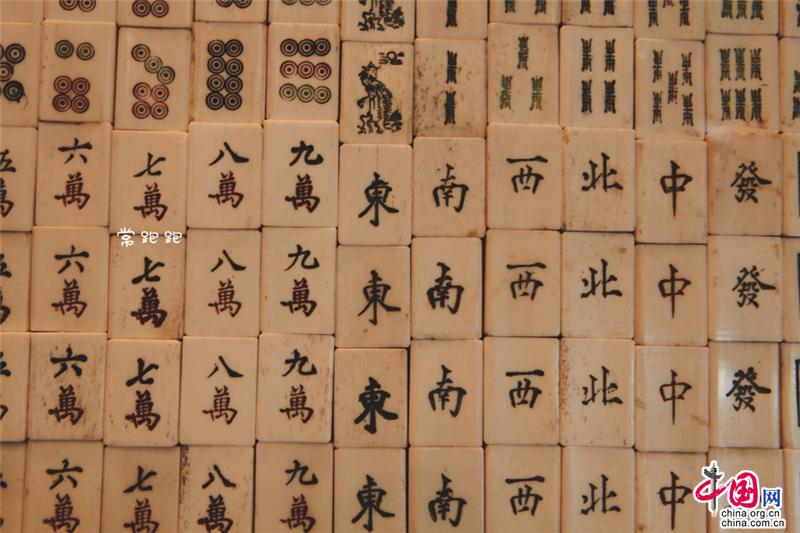 六萬 七萬 八萬 九萬 東 南 西 北 中 發
常跑跑
六萬 七萬 八萬 九萬 東 南 西 北 中 發
六萬 七萬 八萬 九萬 東 南 西 北 中 發
六萬 七萬 八萬 九萬 東 南 西 北 中
中国网
china.org.cn
china.com.cn